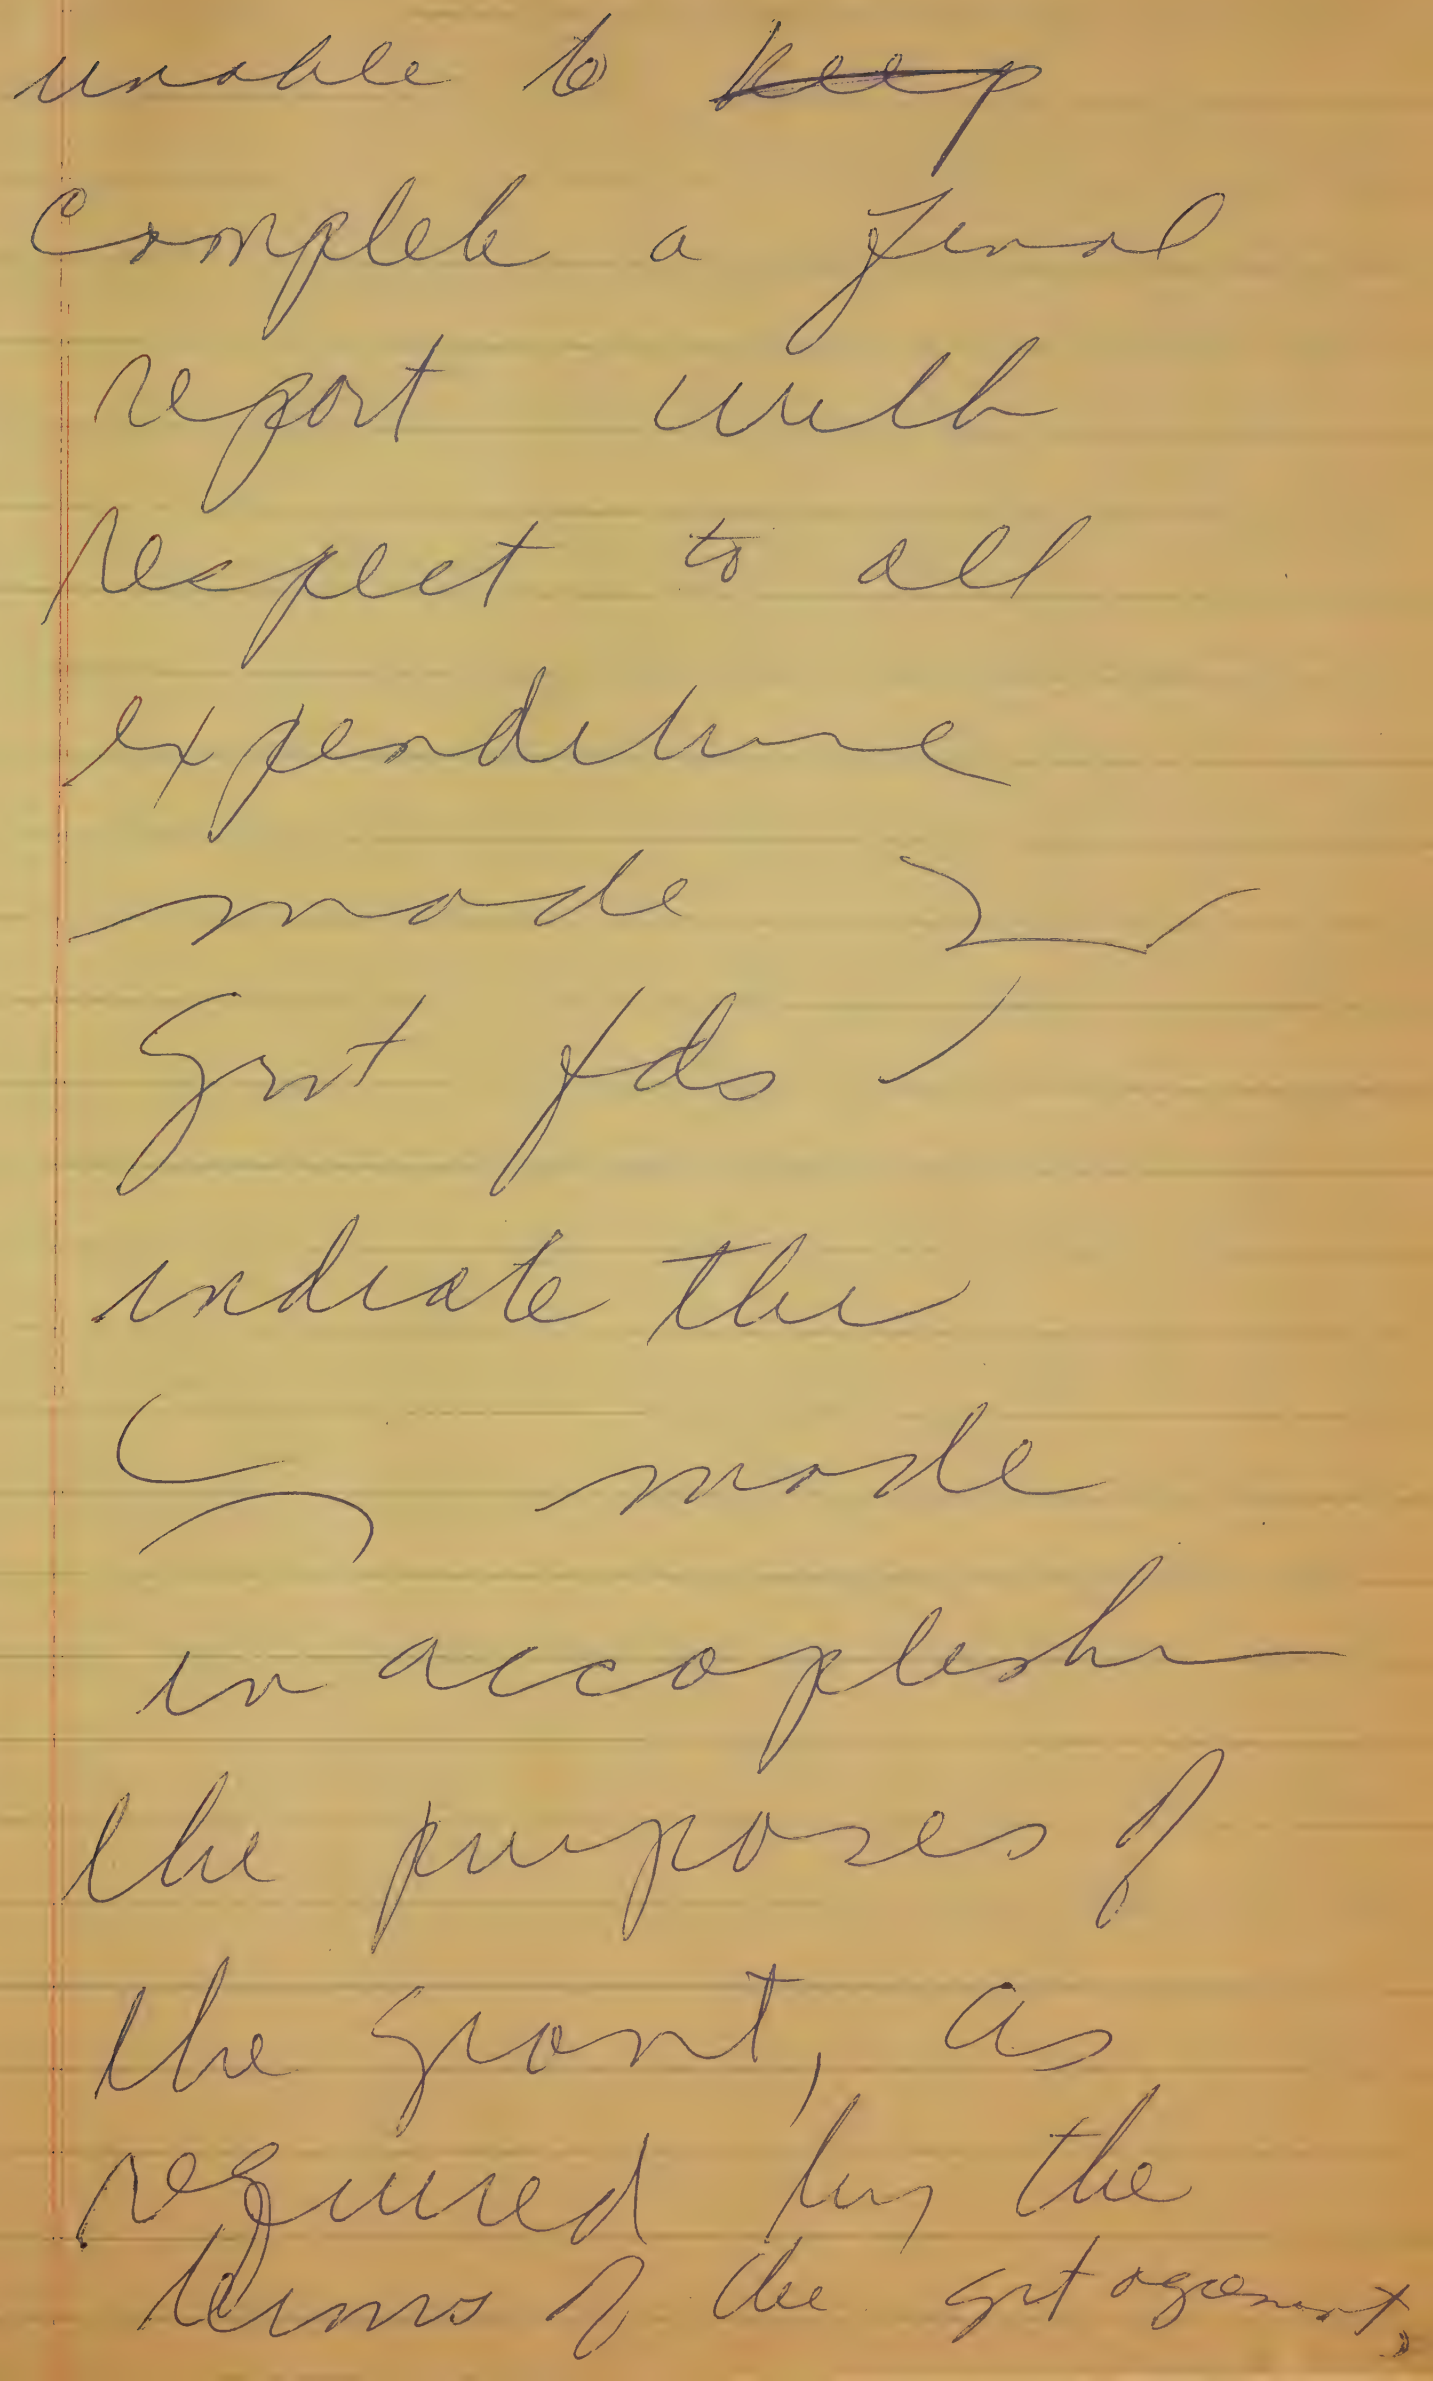 unable to keep
complete a final
report with
respect to all
expenditure
made
grnt fds
indicate the
made
in accoplishn
the purposes of
the grant, as
required by the
terms of the grt agreement.